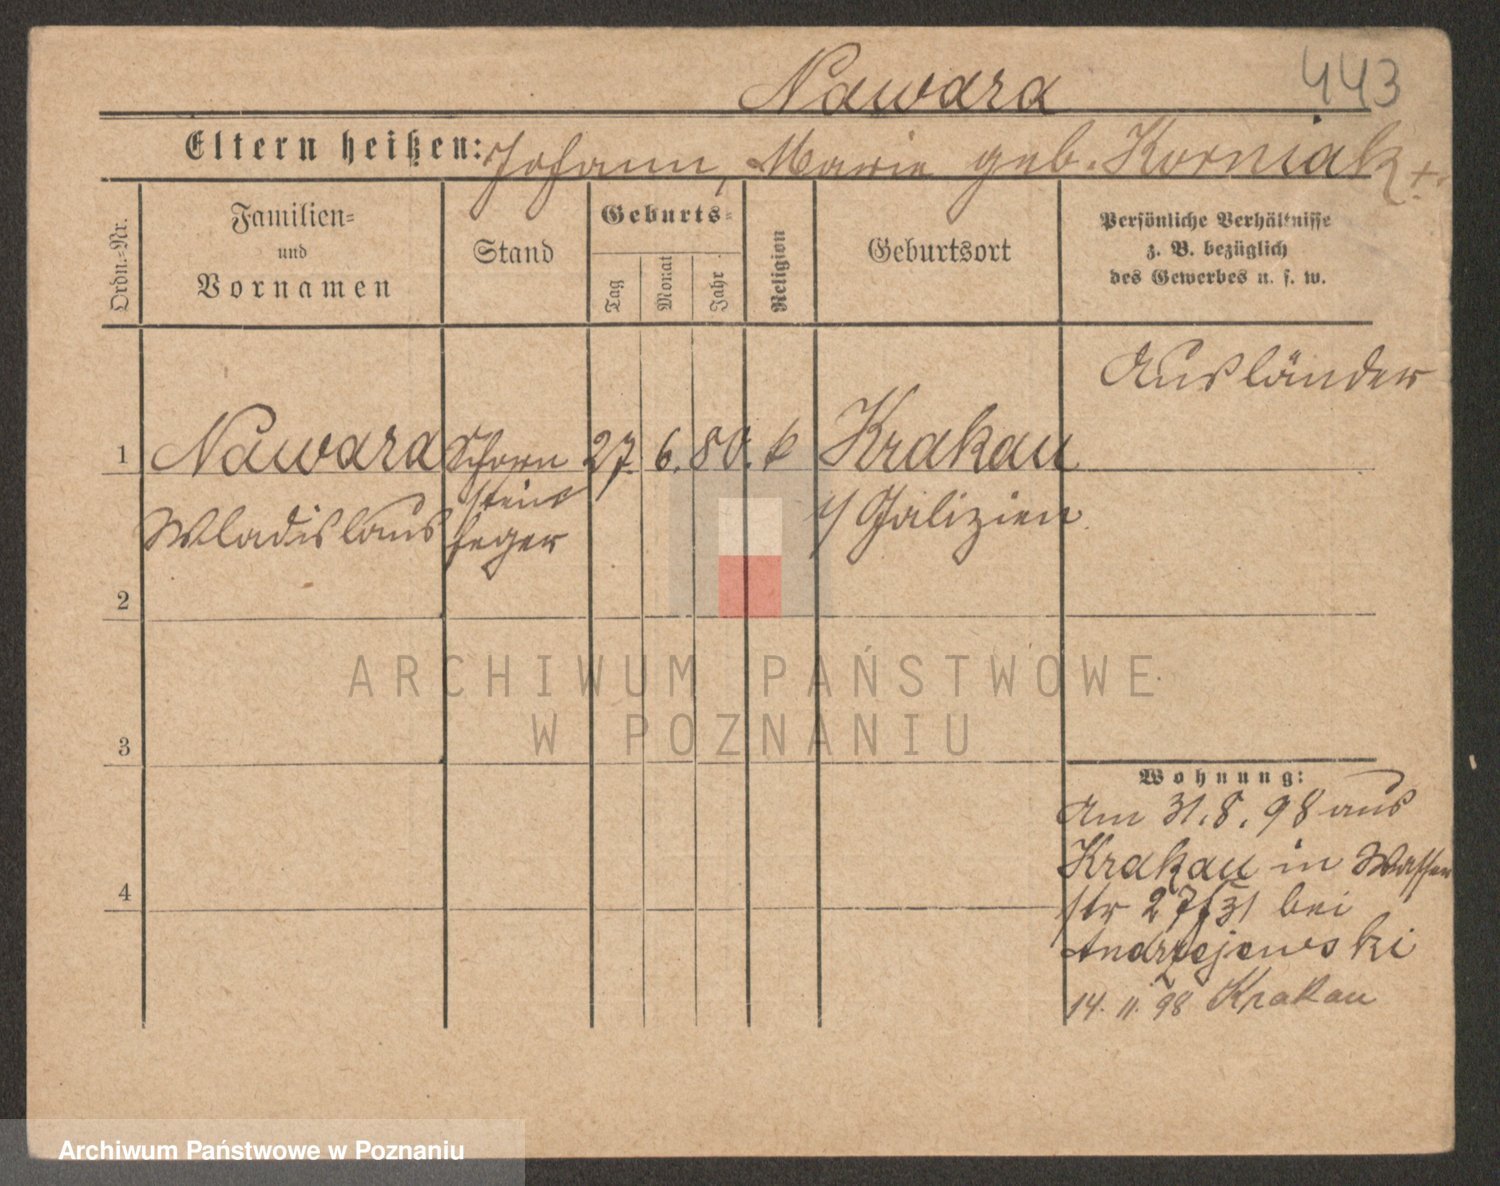 Nawara 443
Eltern heißen: Johann, Marie geb. Korniak +.
Ordn.-Nr.
Familien-
und
Vornamen
Stand
Geburts-
Tag
Monat
Jahr
Religion
Geburtsort
Persönliche Verhältnisse
z. B. bezüglich
des Gewerbes u. s. w.
Ausländer
1 Nawara Schorn 27. 6. 80. k Krakau
stein
Wladislaus feger Galizien
2
ARCHIWUM PAŃSTWOWE
W POZNANIU
3
Wohnung:
Am 31.8.98 aus
Krakau in Wasser
4
str 27/31 bei
Andrzejewski
14. 11. 98 Krakau
Archiwum Państwowe w Poznaniu